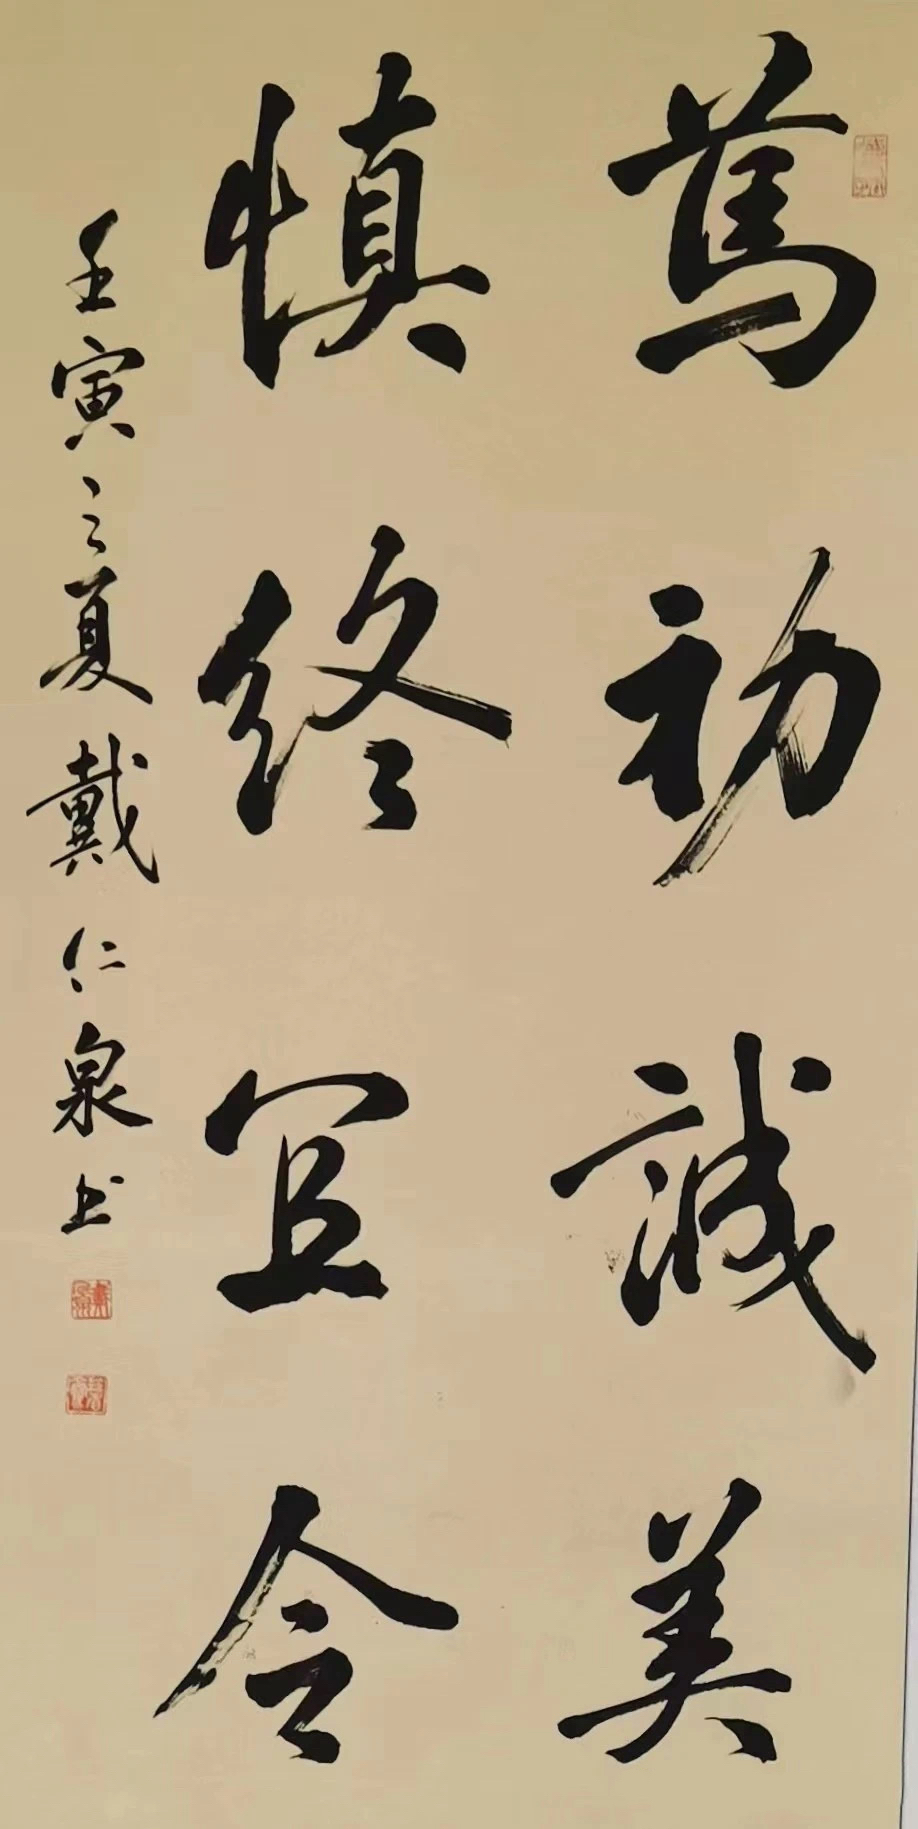 篤初誠美
慎終宜令
壬寅之夏戴仁泉书